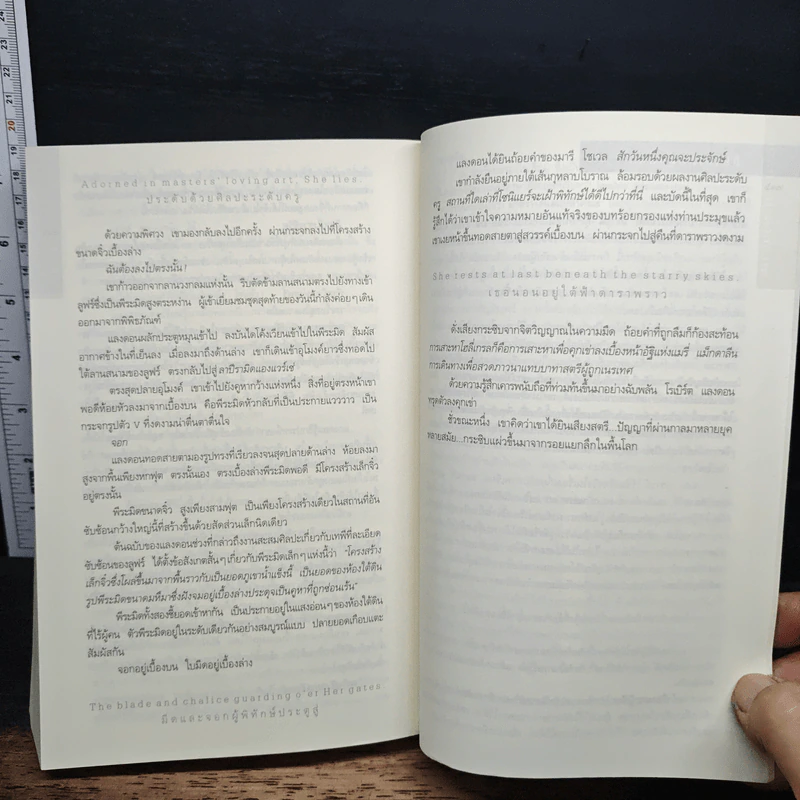 Adorned in masters' loving art, She lies.
ประดับด้วยศิลปะระดับครู
ด้วยความพิศวง เขามองกลับลงไปอีกครั้ง ผ่านกระจกลงไปที่โครงสร้าง
ขนาดจิ๋วเบื้องล่าง
ฉันต้องลงไปตรงนั้น!
เขาก้าวออกจากลานวงกลมแห่งนั้น รีบตัดข้ามลานสนามตรงไปยังทางเข้า
ลูฟร์ซึ่งเป็นพีระมิดสูงตระหง่าน ผู้เข้าเยี่ยมชมชุดสุดท้ายของวันนี้กำลังค่อยๆ เดิน
ออกมาจากพิพิธภัณฑ์
แลงดอนผลักประตูหมุนเข้าไป ลงบันไดโค้งเวียนเข้าไปในพีระมิด สัมผัส
อากาศข้างในที่เย็นลง เมื่อลงมาถึงด้านล่าง เขาก็เดินเข้าอุโมงค์ยาวซึ่งทอดไป
ใต้ลานสนามของลูฟร์ ตรงกลับไปสู่ ลาปีรามิดแองแวร์เซ่
ตรงสุดปลายอุโมงค์ เขาเข้าไปยังคูหากว้างแห่งหนึ่ง สิ่งที่อยู่ตรงหน้าเขา
พอดีห้อยหัวลงมาจากเบื้องบน คือพีระมิดหัวกลับที่เป็นประกายแวววาว เป็น
กระจกรูปตัว V ที่งดงามน่าตื่นตาตื่นใจ
จอก
แลงดอนทอดสายตามองรูปทรงที่เรียวลงจนสุดปลายด้านล่าง ห้อยลงมา
สูงจากพื้นเพียงหกฟุต ตรงนั้นเอง ตรงเบื้องล่างพีระมิดพอดี มีโครงสร้างเล็กจิ๋ว
อยู่ตรงนั้น
พีระมิดขนาดจิ๋ว สูงเพียงสามฟุต เป็นเพียงโครงสร้างเดียวในสถานที่อัน
ซับซ้อนกว้างใหญ่นี้ที่สร้างขึ้นด้วยสัดส่วนเล็กนิดเดียว
ต้นฉบับของแลงดอนช่วงที่กล่าวถึงงานสะสมศิลปะเกี่ยวกับเทพีที่ละเอียด
ซับซ้อนของลูฟร์ ได้ตั้งข้อสังเกตสั้นๆ เกี่ยวกับพีระมิดเล็กๆ แห่งนี้ว่า "โครงสร้าง
เล็กจิ๋วซึ่งโผล่ขึ้นมาจากพื้นราวกับเป็นยอดภูเขาน้ำแข็งนี้ เป็นยอดของห้องใต้ดิน
รูปพีระมิดขนาดมหึมาซึ่งฝังจมอยู่เบื้องล่างประดุจเป็นคูหาที่ถูกซ่อนเร้น"
พีระมิดทั้งสองชี้ยอดเข้าหากัน เป็นประกายอยู่ในแสงอ่อนๆ ของห้องใต้ดิน
ที่ไร้ผู้คน ตัวพีระมิดอยู่ในระดับเดียวกันอย่างสมบูรณ์แบบ ปลายยอดเกือบแตะ
สัมผัสกัน
จอกอยู่เบื้องบน ใบมีดอยู่เบื้องล่าง
The blade and chalice guarding o'er Her gates
มีดและจอกผู้พิทักษ์ประตูสู่
แลงดอนได้ยินถ้อยคำของมารี โชเวล สักวันหนึ่งคุณจะประจักษ์
เขากำลังยืนอยู่ภายใต้เส้นกุหลาบโบราณ ล้อมรอบด้วยผลงานศิลปะระดับ
ครู สถานที่ใดเล่าที่โซนิแยร์จะเฝ้าพิทักษ์ได้ดีไปกว่าที่นี่ และบัดนี้ในที่สุด เขาก็
รู้สึกได้ว่าเขาเข้าใจความหมายอันแท้จริงของบทร้อยกรองแห่งท่านประมุขแล้ว
เขาเงยหน้าขึ้นทอดสายตาสู่สวรรค์เบื้องบน ผ่านกระจกไปสู่คืนที่ดาราพราวงดงาม
She rests at last beneath the starry skies.
เธอนอนอยู่ใต้ฟ้าดาราพราว
ดั่งเสียงกระซิบจากจิตวิญญาณในความมืด ถ้อยคำที่ถูกลืมก็ก้องสะท้อน
การเสาะหาโฮลี่เกรลก็คือการเสาะหาเพื่อคุกเข่าลงเบื้องหน้าอัฐิแห่งแมรี่ แม็กดาลีน
การเดินทางเพื่อสวดภาวนาแทบบาทาสตรีผู้ถูกเนรเทศ
ด้วยความรู้สึกเคารพนับถือที่ท่วมท้นขึ้นมาอย่างฉับพลัน โรเบิร์ต แลงดอน
ทรุดตัวลงคุกเข่า
ชั่วขณะหนึ่ง เขาคิดว่าเขาได้ยินเสียงสตรี...ปัญญาที่ผ่านกาลมาหลายยุค
หลายสมัย...กระซิบแผ่วขึ้นมาจากรอยแยกลึกในพื้นโลก
24
23
22
21
20
19
18
17
6
5
4
3
2
1